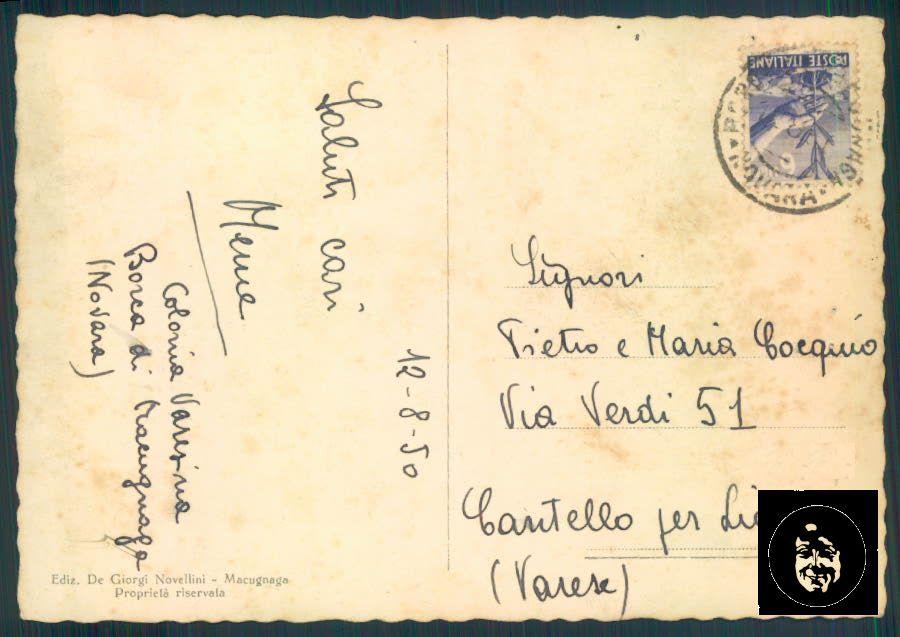 12-8-50
Saluti cari
Meme
Colonia Varesina
Borca di Macugnaga
(Novara)
Ediz. De Giorgi Novellini - Macugnaga
Proprietà riservata
POSTE ITALIANE
NOVARA
Signori
Pietro e Maria Cocquio
Via Verdi 51
Cantello per
(Varese)